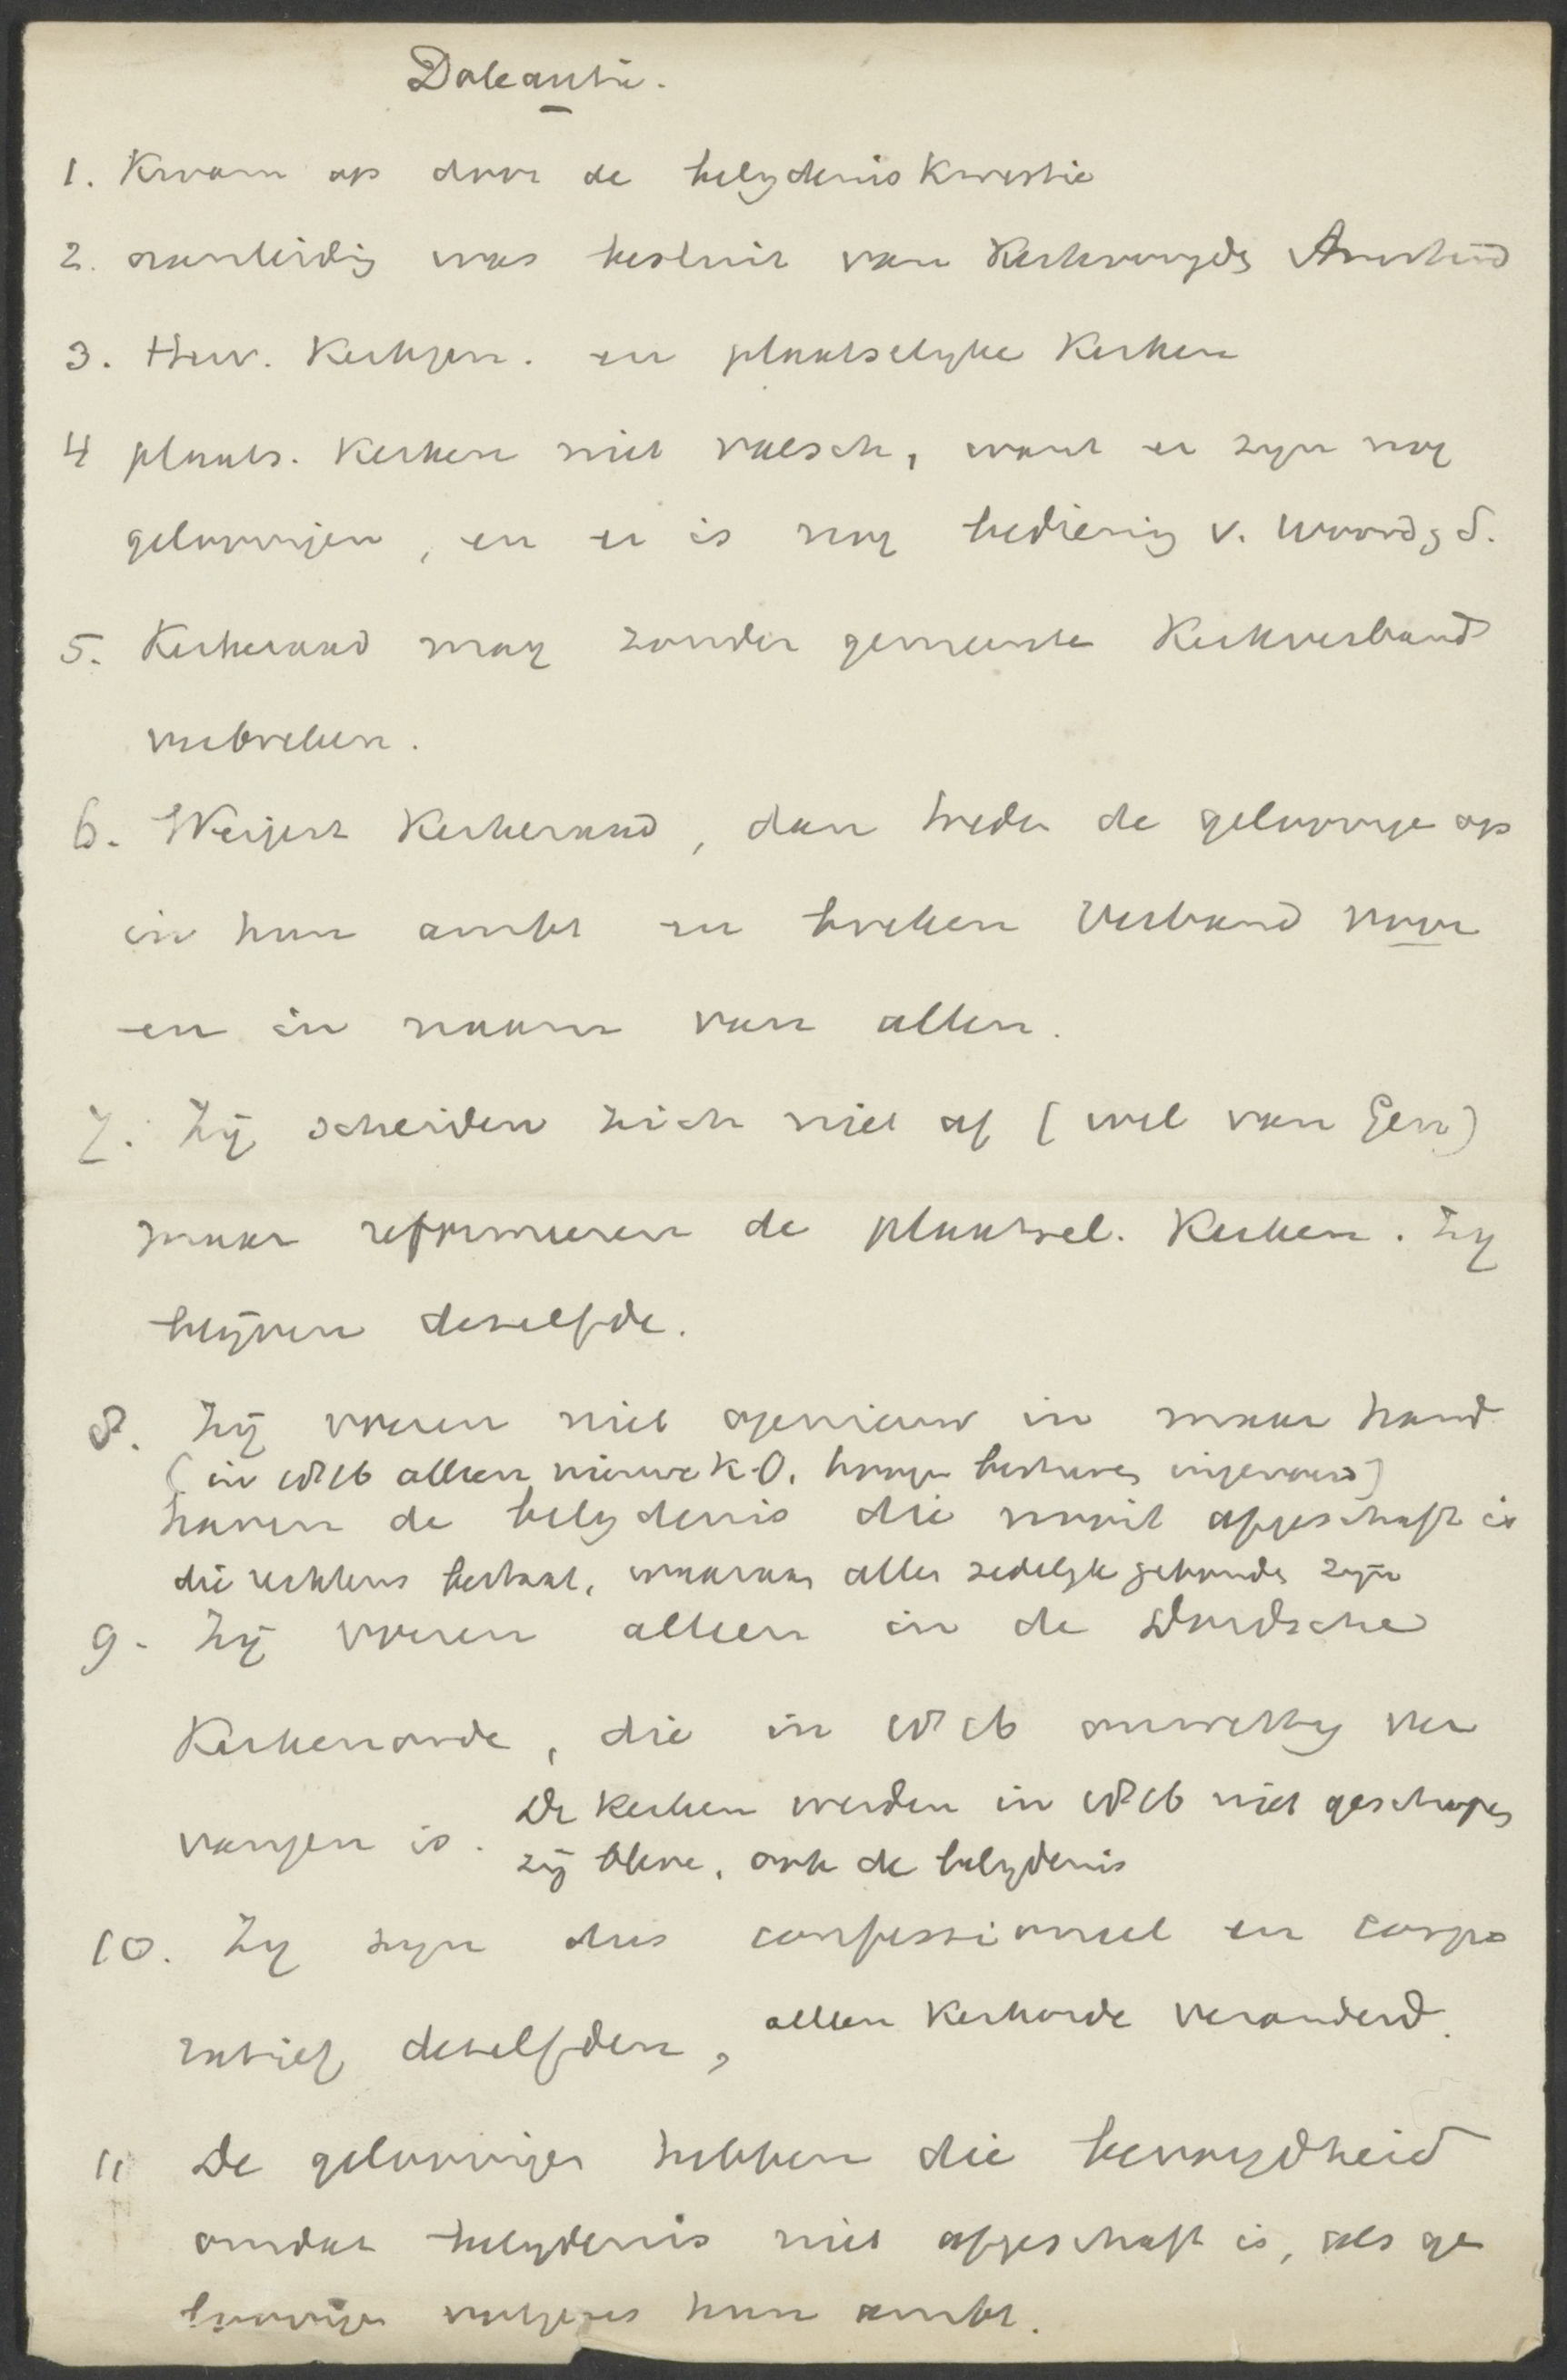 Doleantie.
1. Kwam op door de belydenis kwestie
2. aanleiding was besluit van Kerkvoogdy Amsterd
3. Herv. Kerkgen. en plaatselyke Kerken
4 plaats. Kerken niet valsch, want er zyn nog
geloovigen, en er is nog bediening v. Woord, S.
5. Kerkeraad mag zonder gemeente Kerkverband
verbreken.
6. Weigert Kerkeraad, dan treden de geloovige op
in hun ambt en breken verband voor
en in naam van allen.
7. Zij scheiden zich niet af (wel van Gen)
maar reformeren de plaatsel. Kerken. Zy
blijven dezelfde.
8. Zij voeren niet opnieuw in maar hand
(in 1816 alleen nieuwe K.O. hooge besturen ingevoerd)
haven de belydenis die nooit afgeschaft is
die rechtens bestaat, waaraan allen zedelyk gebonden zyn
9. Zij voeren alleen in de Dordsche
Kerkenorde, die in 1816 onwettig ver
vangen is.
De kerken werden in 1816 niet geschapen
zij bleven, ook de belydenis
10. Zy zyn dus confessioneel en corpo
ratief dezelfden, alleen Kerkorde veranderd.
11 De geloovigen hebben die bevoegdheid
omdat belydenis niet afgeschaft is, als ge
loovigen volgens hun ambt.